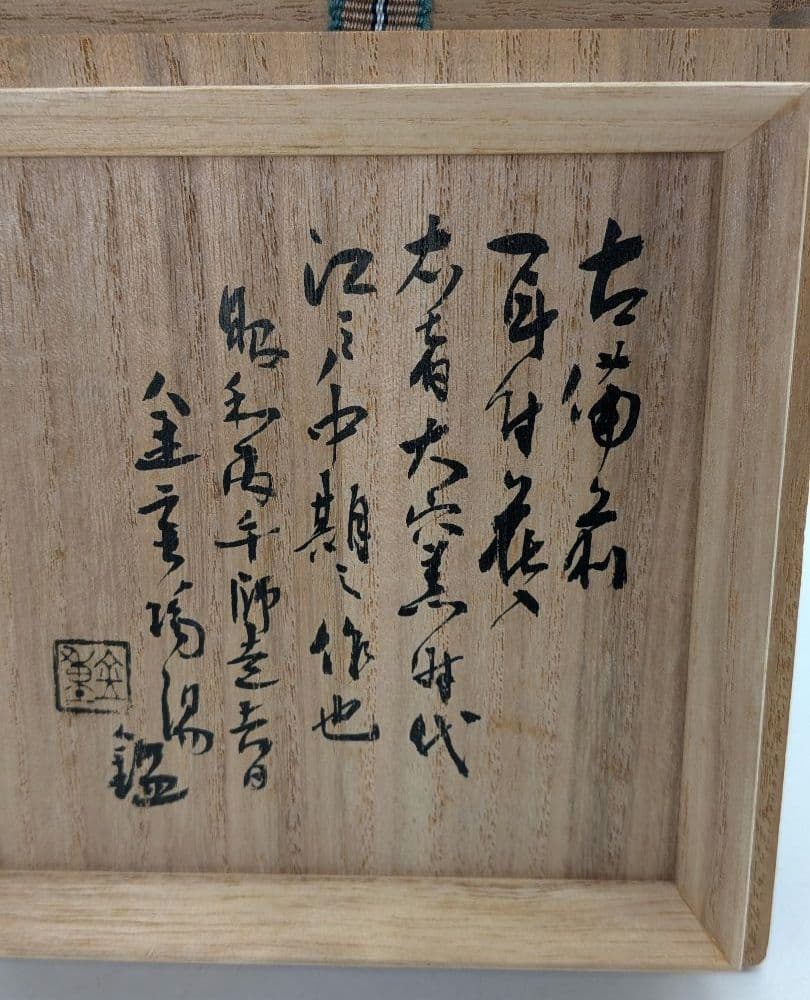 古備前
耳付花入
右者大窯時代
江戸中期之作也
昭和丙午師走吉日
金重陶陽鑑
金重